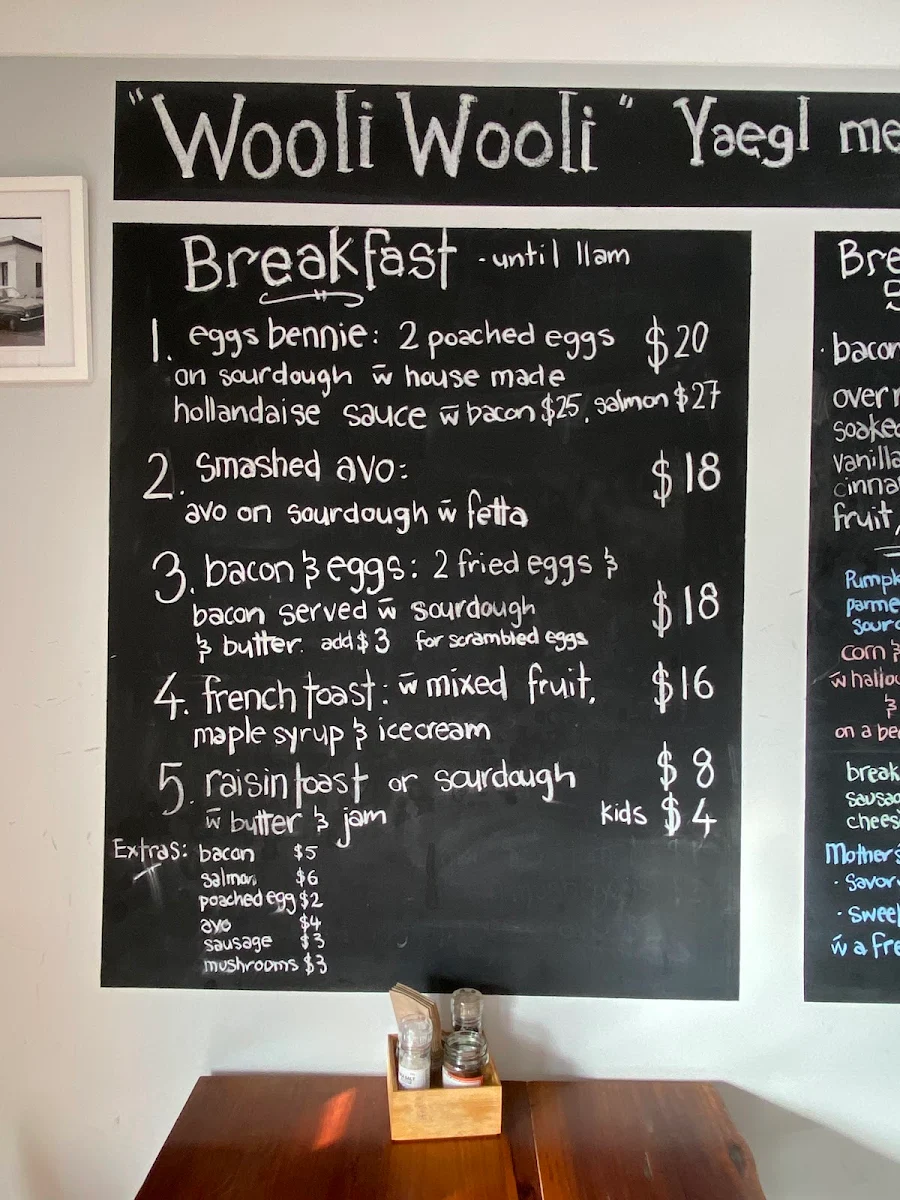 "Wooli Wooli" Yaegl me
Breakfast - until 11am
1. eggs bennie: 2 poached eggs $20
on sourdough w̄ house made
hollandaise sauce w̄ bacon $25, salmon $27
2. Smashed avo: $18
avo on sourdough w̄ fetta
3. bacon & eggs: 2 fried eggs &
bacon served w̄ sourdough $18
& butter. add $3 for scrambled eggs
4. french toast: w̄ mixed fruit, $16
maple syrup & icecream
5. raisin toast or sourdough $8
w̄ butter & jam kids $4
Extras: bacon $5
salmon $6
poached egg $2
avo $4
sausage $3
mushrooms $3
Bre
· bacon
over
soaked
vanilla
cinna
fruit,
Pumpk
parme
sour
corn &
w̄ hallou
&
on a be
break
sausag
chees
Mothers
· savor
· sweet
w̄ a fre